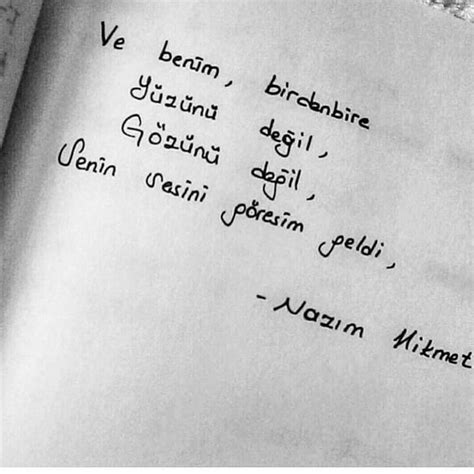 Ve benim, birdenbire
Yüzünü değil,
Gözünü değil,
Senin sesini göresim geldi,
- Nazım Hikmet